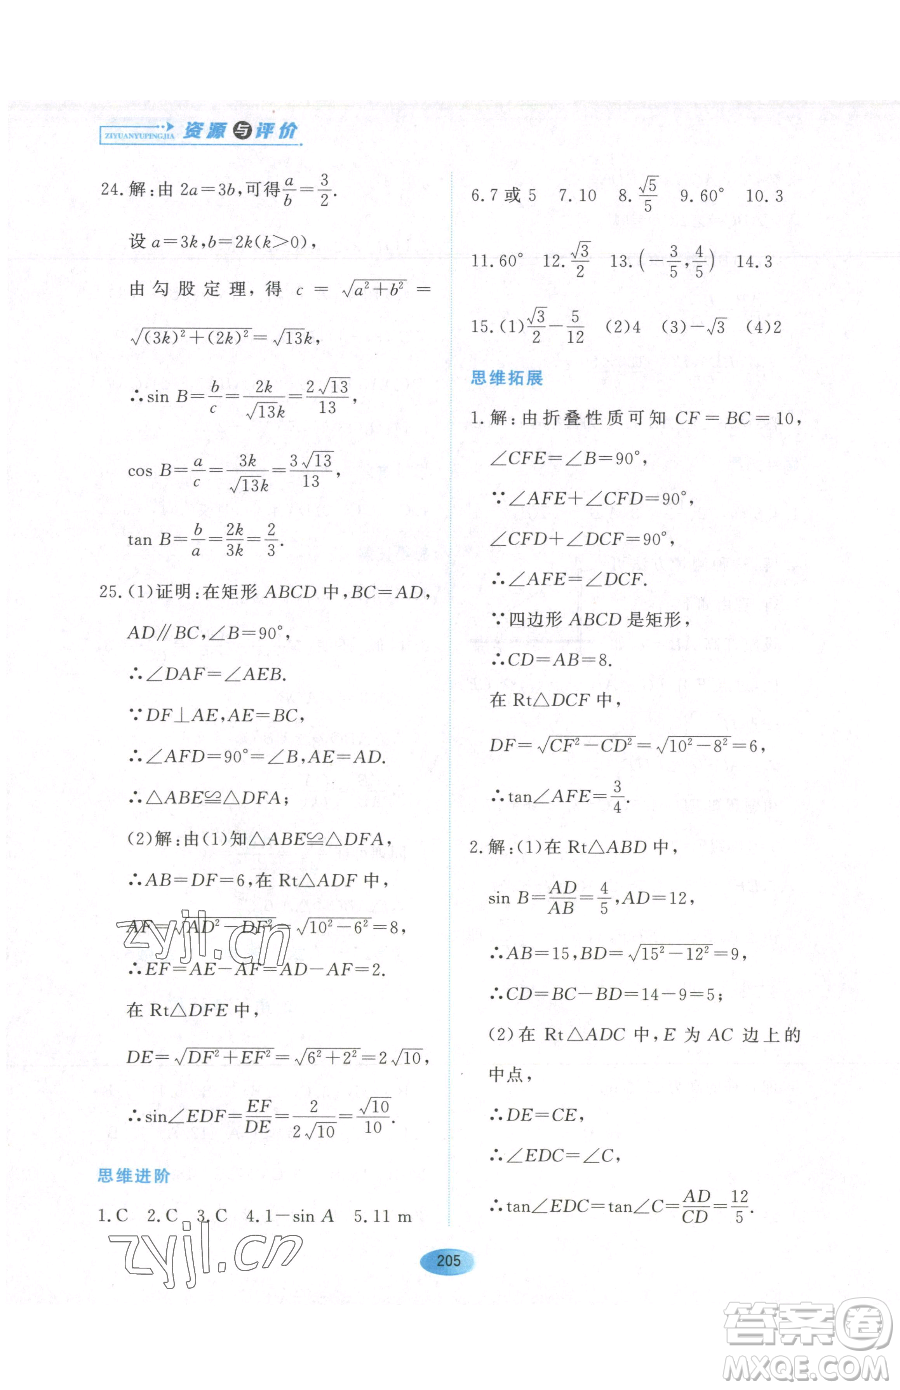 ZIYUANYUPINGJIA 资源与评价
24.解:由 2a=3b,可得a/b=3/2.
设 a=3k,b=2k(k>0),
由勾股定理,得 c = √(a²+b²) =
√((3k)²+(2k)²)=√13k,
∴sin B=b/c=2k/(√13k)=2√13/13,
cos B=a/c=3k/(√13k)=3√13/13,
tan B=b/a=2k/3k=2/3.
25.(1)证明:在矩形 ABCD 中,BC=AD,
AD∥BC,∠B=90°,
∴∠DAF=∠AEB.
∵DF⊥AE,AE=BC,
∴∠AFD=90°=∠B,AE=AD.
∴△ABE≌△DFA;
(2)解:由(1)知△ABE≌△DFA,
∴AB=DF=6,在 Rt△ADF 中,
AF=√(AD²-DF²)=√(10²-6²)=8,
∴EF=AE-AF=AD-AF=2.
在 Rt△DFE 中,
DE=√(DF²+EF²)=√(6²+2²)=2√10,
∴sin∠EDF=EF/DE=2/(2√10)=√10/10.
思维进阶
1.C 2.C 3.C 4.1-sin A 5.11 m
6.7 或 5 7.10 8.√5/5 9.60° 10.3
11.60° 12.√3/2 13.(-3/5,4/5) 14.3
15.(1)√3/2-5/12 (2)4 (3)-√3 (4)2
思维拓展
1.解:由折叠性质可知 CF=BC=10,
∠CFE=∠B=90°,
∵∠AFE+∠CFD=90°,
∠CFD+∠DCF=90°,
∴∠AFE=∠DCF.
∵四边形 ABCD 是矩形,
∴CD=AB=8.
在 Rt△DCF 中,
DF=√(CF²-CD²)=√(10²-8²)=6,
∴tan∠AFE=3/4.
2.解:(1)在 Rt△ABD 中,
sin B=AD/AB=4/5,AD=12,
∴AB=15,BD=√(15²-12²)=9,
∴CD=BC-BD=14-9=5;
(2)在 Rt△ADC 中,E 为 AC 边上的
中点,
∴DE=CE,
∴∠EDC=∠C,
∴tan∠EDC=tan∠C=AD/CD=12/5.
205
zyjl.cn
zyjl.cn
答案圈
MXQE.COM